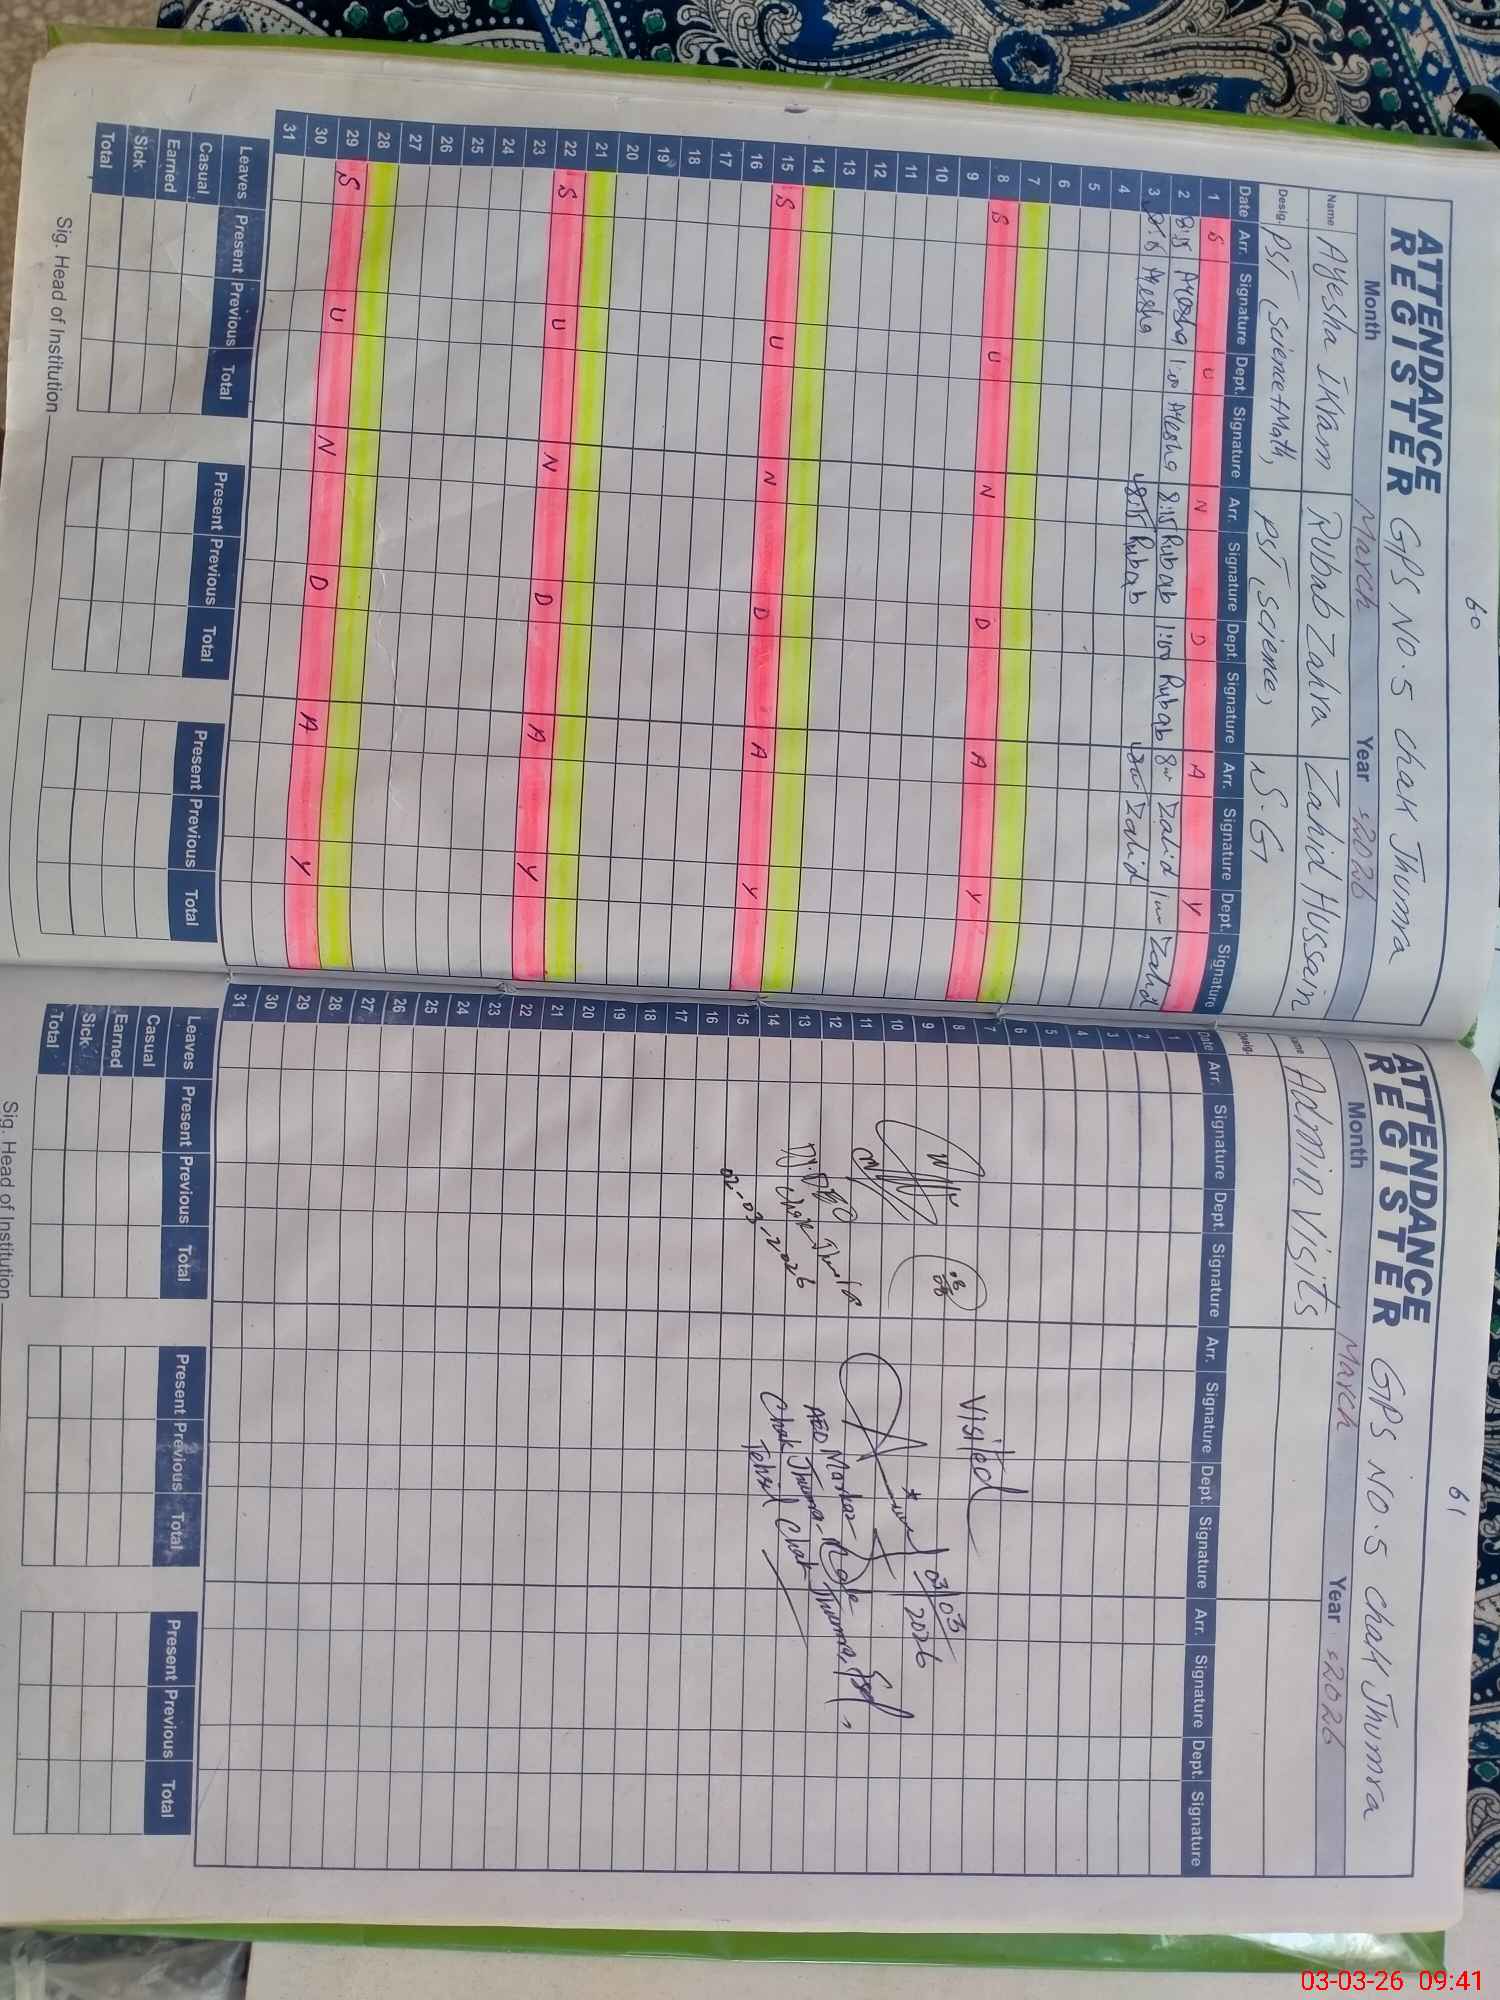 60
ATTENDANCE
REGISTER
GPS NO.5 Chak Jhumra
Month March Year 2026
Name Ayesha Ikram Rubab Zahra Zahid Hussain
Desig. PST (Science+Math, PST (Science, N.S.G
Date Arr. Signature Dept. Signature Arr. Signature Dept. Signature Arr. Signature Dept. Signature
1 S U N D A Y
2 8:15 Ayesha 1:00 Ayesha 8:15 Rubab 1:00 Rubab 8 Zahid 1 Zahid
3 8:15 Ayesha 8:15 Rubab Zahid
4
5
6
7
8 S U N D A Y
9
10
11
12
13
14
15 S U N D A Y
16
17
18
19
20
21
22 S U N D A Y
23
24
25
26
27
28
29 S U N D A Y
30
31
Leaves Present Previous Total Present Previous Total Present Previous Total
Casual
Earned
Sick
Total
Sig. Head of Institution
61
ATTENDANCE
REGISTER
GPS NO.5 Chak Jhumra
Month March Year 2026
Name Admin Visits
Desig.
Date Arr. Signature Dept. Signature Arr. Signature Dept. Signature Arr. Signature Dept. Signature
1
2
3
4
5
6
7
8
9
10
11
12
13
14
15
16
17
18
19
20
21
22
23
24
25
26
27
28
29
30
31
Dy. DEO
Chak Jhumra
02-03-2026
Visited
03/03
2026
AEO Markaz
Chak Jhumra
Tehsil Chak Jhumra, Fsd
Leaves Present Previous Total Present Previous Total Present Previous Total
Casual
Earned
Sick
Total
Sig. Head of Institution
03-03-26 09:41